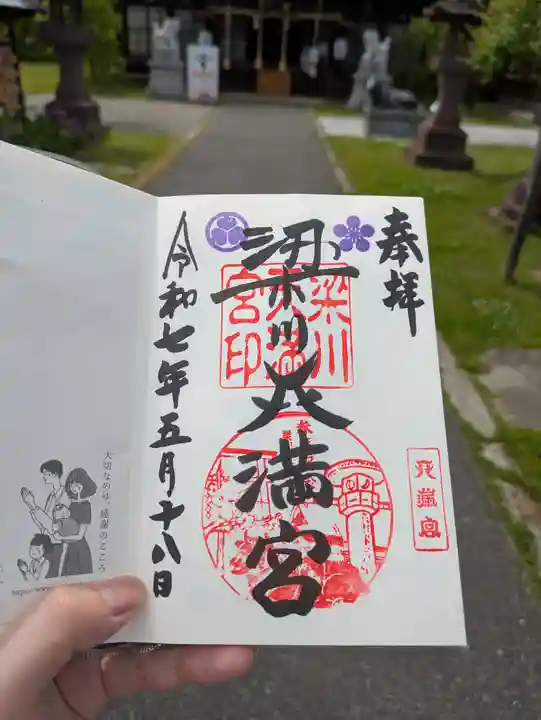 奉拝
梁川天満宮
梁川
天満
宮印
天満宮
令和七年五月十八日
大切なのは、感謝のこころ